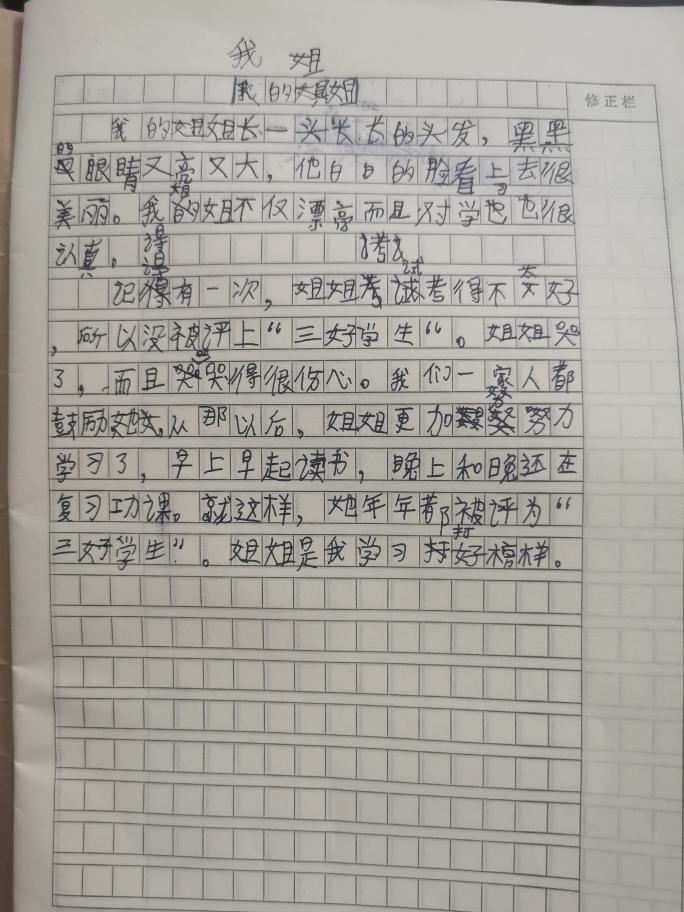 我 姐
我的姐姐
修正栏
我的姐姐长一头长长的头发，黑黑
的眼睛又亮又大，他白白的脸看上去很
美丽。我的姐不仅漂亮而且对学也也很
认真，
记得有一次，姐姐考试考得不太好
，所以没被评上“三好学生“。姐姐哭
了，而且哭得很伤心。我们一家人都
鼓励她，从那以后，姐姐更加努力
学习了，早上早起读书，晚上和晚还在
复习功课。就这样，她年年都被评为“
三好学生”。姐姐是我学习好榜样。